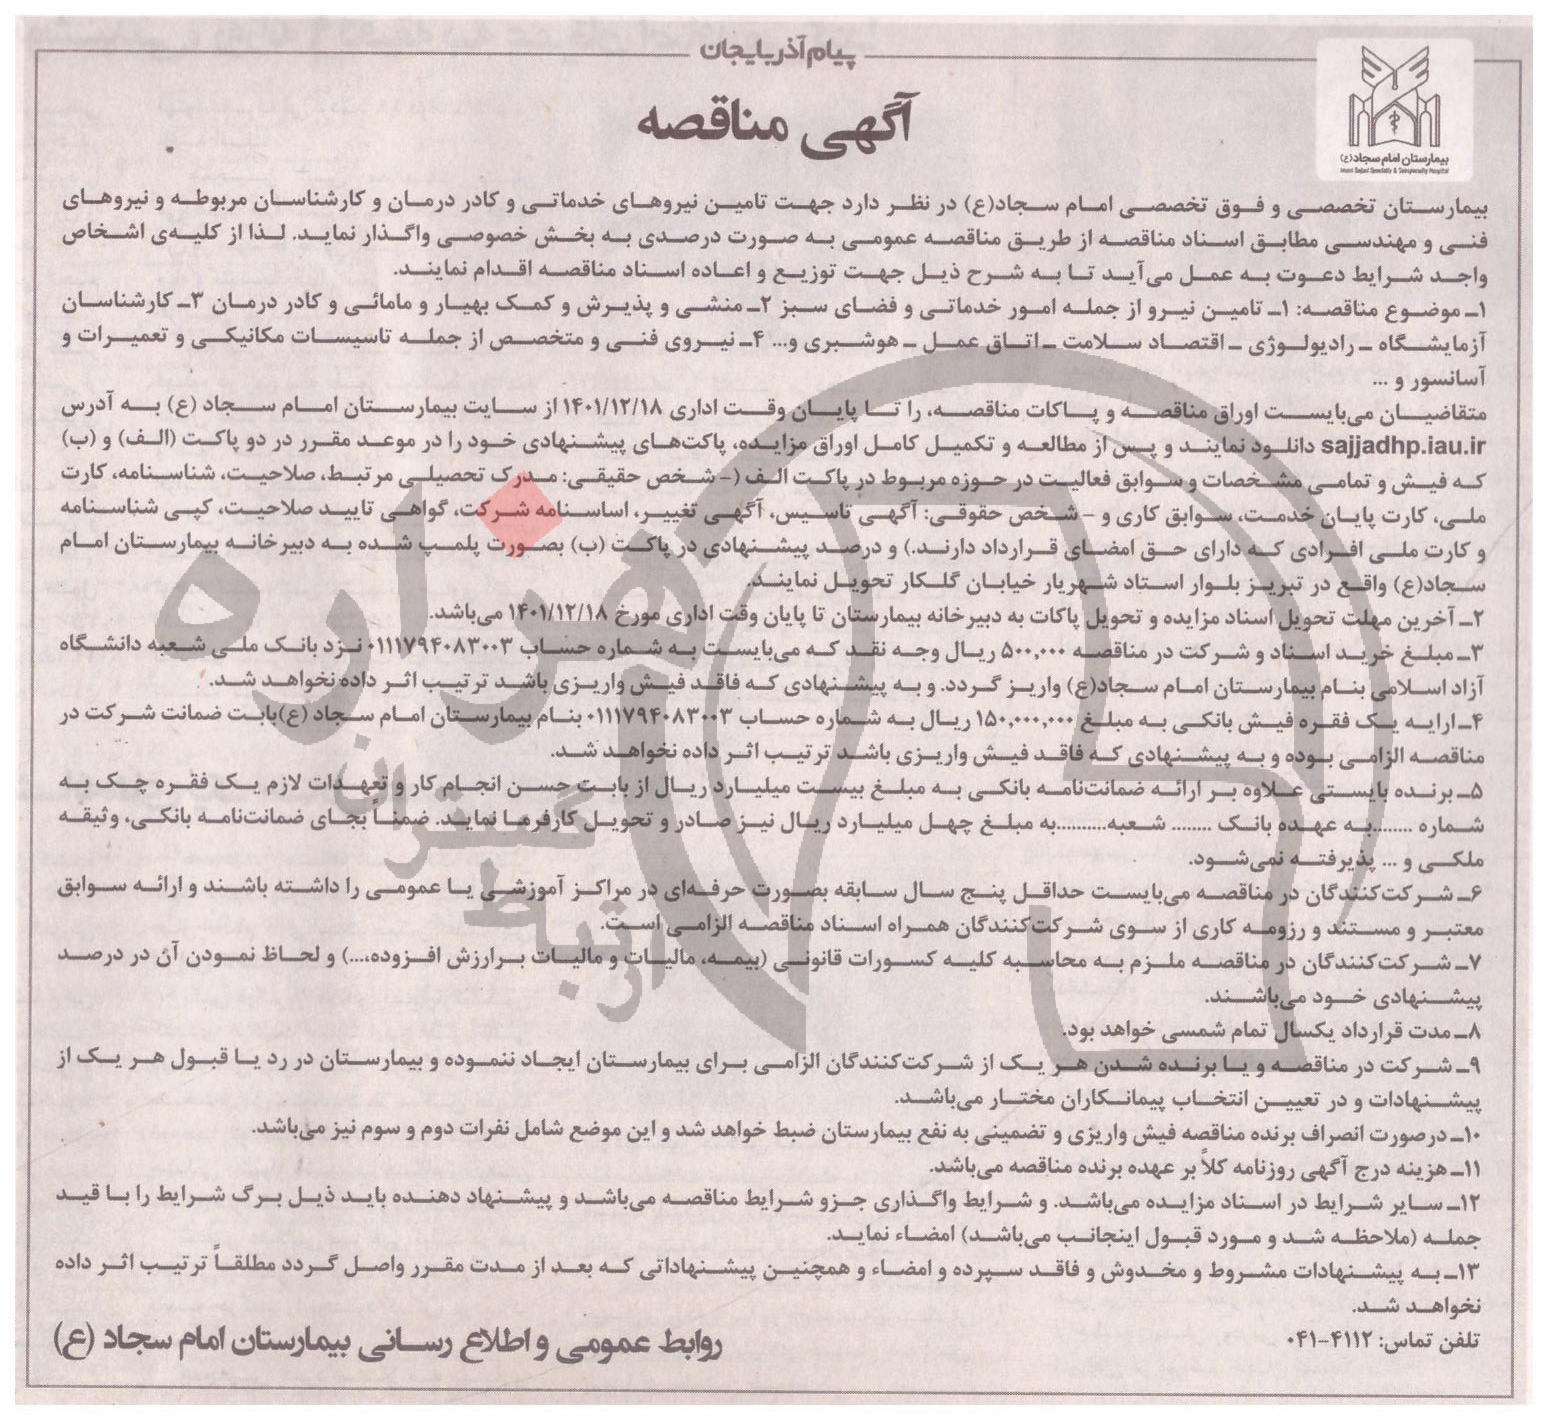 پیام آذربایجان
بیمارستان امام سجاد (ع)
Imam Sajjad Specialty & Subspecialty Hospital
آگهی مناقصه
بیمارستان تخصصی و فوق تخصصی امام سجاد(ع) در نظر دارد جهت تامین نیروهای خدماتی و کادر درمان و کارشناسان مربوطه و نیروهای
فنی و مهندسی مطابق اسناد مناقصه از طریق مناقصه عمومی به صورت درصدی به بخش خصوصی واگذار نماید. لذا از کلیه‌ی اشخاص
واجد شرایط دعوت به عمل می‌آید تا به شرح ذیل جهت توزیع و اعاده اسناد مناقصه اقدام نمایند.
۱ـ موضوع مناقصه: ۱ـ تامین نیرو از جمله امور خدماتی و فضای سبز ۲ـ منشی و پذیرش و کمک بهیار و مامائی و کادر درمان ۳ـ کارشناسان
آزمایشگاه ـ رادیولوژی ـ اقتصاد سلامت ـ اتاق عمل ـ هوشبری و... ۴ـ نیروی فنی و متخصص از جمله تاسیسات مکانیکی و تعمیرات و
آسانسور و ...
متقاضیان می‌بایست اوراق مناقصه و پاکات مناقصه، را تا پایان وقت اداری ۱۴۰۱/۱۲/۱۸ از سایت بیمارستان امام سجاد (ع) به آدرس
sajjadhp.iau.ir دانلود نمایند و پس از مطالعه و تکمیل کامل اوراق مزایده، پاکت‌های پیشنهادی خود را در موعد مقرر در دو پاکت (الف) و (ب)
که فیش و تمامی مشخصات و سوابق فعالیت در حوزه مربوط در پاکت الف (- شخص حقیقی: مدرک تحصیلی مرتبط، صلاحیت، شناسنامه، کارت
ملی، کارت پایان خدمت، سوابق کاری و - شخص حقوقی: آگهی تاسیس، آگهی تغییر، اساسنامه شرکت، گواهی تایید صلاحیت، کپی شناسنامه
و کارت ملی افرادی که دارای حق امضای قرارداد دارند.) و درصد پیشنهادی در پاکت (ب) بصورت پلمپ شده به دبیرخانه بیمارستان امام
سجاد(ع) واقع در تبریز بلوار استاد شهریار خیابان گلکار تحویل نمایند.
۲ـ آخرین مهلت تحویل اسناد مزایده و تحویل پاکات به دبیرخانه بیمارستان تا پایان وقت اداری مورخ ۱۴۰۱/۱۲/۱۸ می‌باشد.
۳ـ مبلغ خرید اسناد و شرکت در مناقصه ۵۰۰,۰۰۰ ریال وجه نقد که می‌بایست به شماره حساب ۰۱۱۱۷۹۴۰۸۳۰۰۳ نزد بانک ملی شعبه دانشگاه
آزاد اسلامی بنام بیمارستان امام سجاد(ع) واریز گردد. و به پیشنهادی که فاقد فیش واریزی باشد ترتیب اثر داده نخواهد شد.
۴ـ ارایه یک فقره فیش بانکی به مبلغ ۱۵۰,۰۰۰,۰۰۰ ریال به شماره حساب ۰۱۱۱۷۹۴۰۸۳۰۰۳ بنام بیمارستان امام سجاد (ع)بابت ضمانت شرکت در
مناقصه الزامی بوده و به پیشنهادی که فاقد فیش واریزی باشد ترتیب اثر داده نخواهد شد.
۵ـ برنده بایستی علاوه بر ارائه ضمانت‌نامه بانکی به مبلغ بیست میلیارد ریال از بابت حسن انجام کار و تعهدات لازم یک فقره چک به
شماره ........به عهده بانک ........ شعبه..........به مبلغ چهل میلیارد ریال نیز صادر و تحویل کارفرما نماید. ضمناً بجای ضمانت‌نامه بانکی، وثیقه
ملکی و ... پذیرفته نمی‌شود.
۶ـ شرکت‌کنندگان در مناقصه می‌بایست حداقل پنج سال سابقه بصورت حرفه‌ای در مراکز آموزشی یا عمومی را داشته باشند و ارائه سوابق
معتبر و مستند و رزومه کاری از سوی شرکت‌کنندگان همراه اسناد مناقصه الزامی است.
۷ـ شرکت‌کنندگان در مناقصه ملزم به محاسبه کلیه کسورات قانونی (بیمه، مالیات و مالیات برارزش افزوده،...) و لحاظ نمودن آن در درصد
پیشنهادی خود می‌باشند.
۸ـ مدت قرارداد یکسال تمام شمسی خواهد بود.
۹ـ شرکت در مناقصه و یا برنده شدن هر یک از شرکت‌کنندگان الزامی برای بیمارستان ایجاد ننموده و بیمارستان در رد یا قبول هر یک از
پیشنهادات و در تعیین انتخاب پیمانکاران مختار می‌باشد.
۱۰ـ درصورت انصراف برنده مناقصه فیش واریزی و تضمینی به نفع بیمارستان ضبط خواهد شد و این موضع شامل نفرات دوم و سوم نیز می‌باشد.
۱۱ـ هزینه درج آگهی روزنامه کلاً بر عهده برنده مناقصه می‌باشد.
۱۲ـ سایر شرایط در اسناد مزایده می‌باشد. و شرایط واگذاری جزو شرایط مناقصه می‌باشد و پیشنهاد دهنده باید ذیل برگ شرایط را با قید
جمله (ملاحظه شد و مورد قبول اینجانب می‌باشد) امضاء نماید.
۱۳ـ به پیشنهادات مشروط و مخدوش و فاقد سپرده و امضاء و همچنین پیشنهاداتی که بعد از مدت مقرر واصل گردد مطلقاً ترتیب اثر داده
نخواهد شد.
تلفن تماس: ۴۱۱۲-۰۴۱
روابط عمومی و اطلاع رسانی بیمارستان امام سجاد (ع)